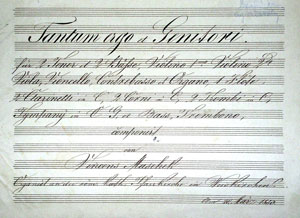 Tantum ergo et Genitori.
für 2 Tenor et 2 Bässe, Violino 1mo Violino 2do
Viola, Violoncello, Contrebasso et Organo, 1 Flöte
2 Clarinetto in C, 2 Corni in C, 2 Trombe in C,
Tympany in C G, et Bass Trombono,
componirt
von
Vincens Maschek
Organist an der